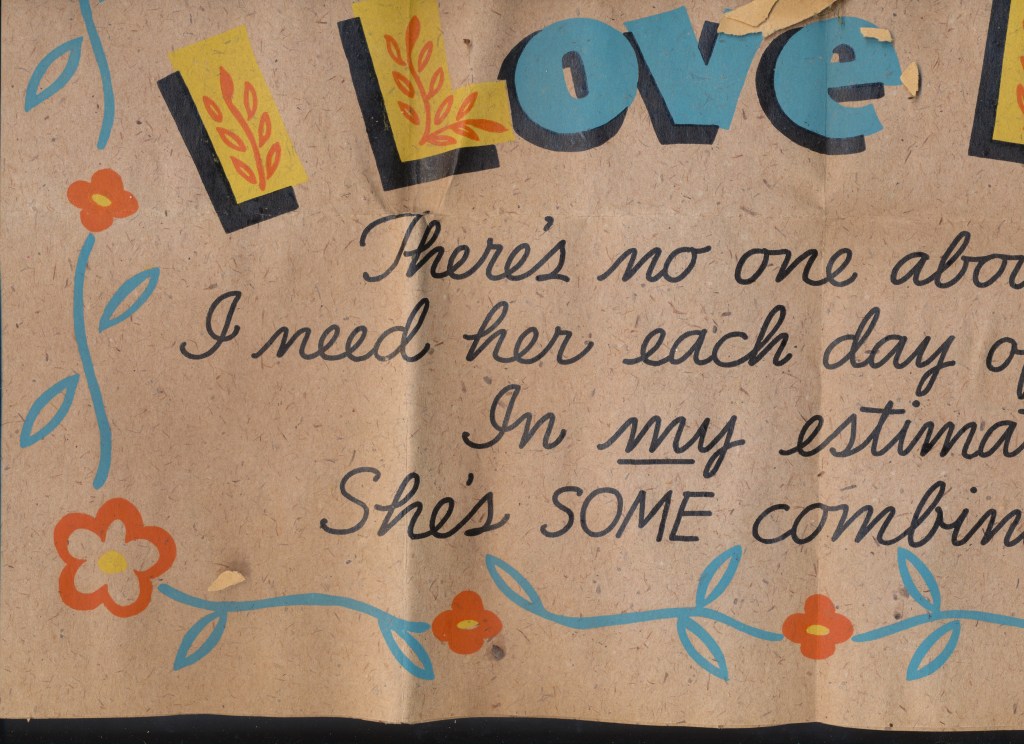 I Love
There's no one abou
I need her each day of
In my estima
She's SOME combin